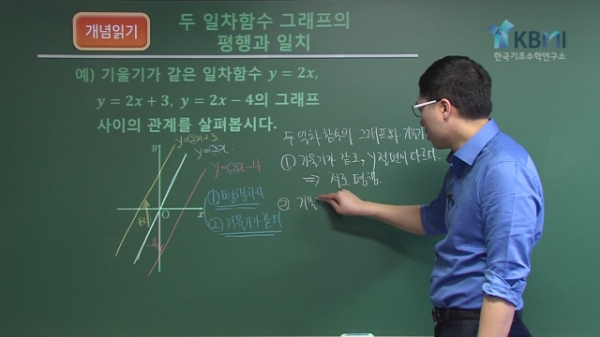 개념읽기
두 일차함수 그래프의
평행과 일치
KBMI
한국기초수학연구소
예) 기울기가 같은 일차함수 y = 2x,
y = 2x + 3, y = 2x − 4의 그래프
사이의 관계를 살펴봅시다.
y=2x+3
y=2x
y=2x-4
x
O
① 평행하다
② 기울기가 같다
두 일차함수의 그래프와 기울기
① 기울기가 같고, y절편이 다르다.
⇒ 서로 평행.
② 기울